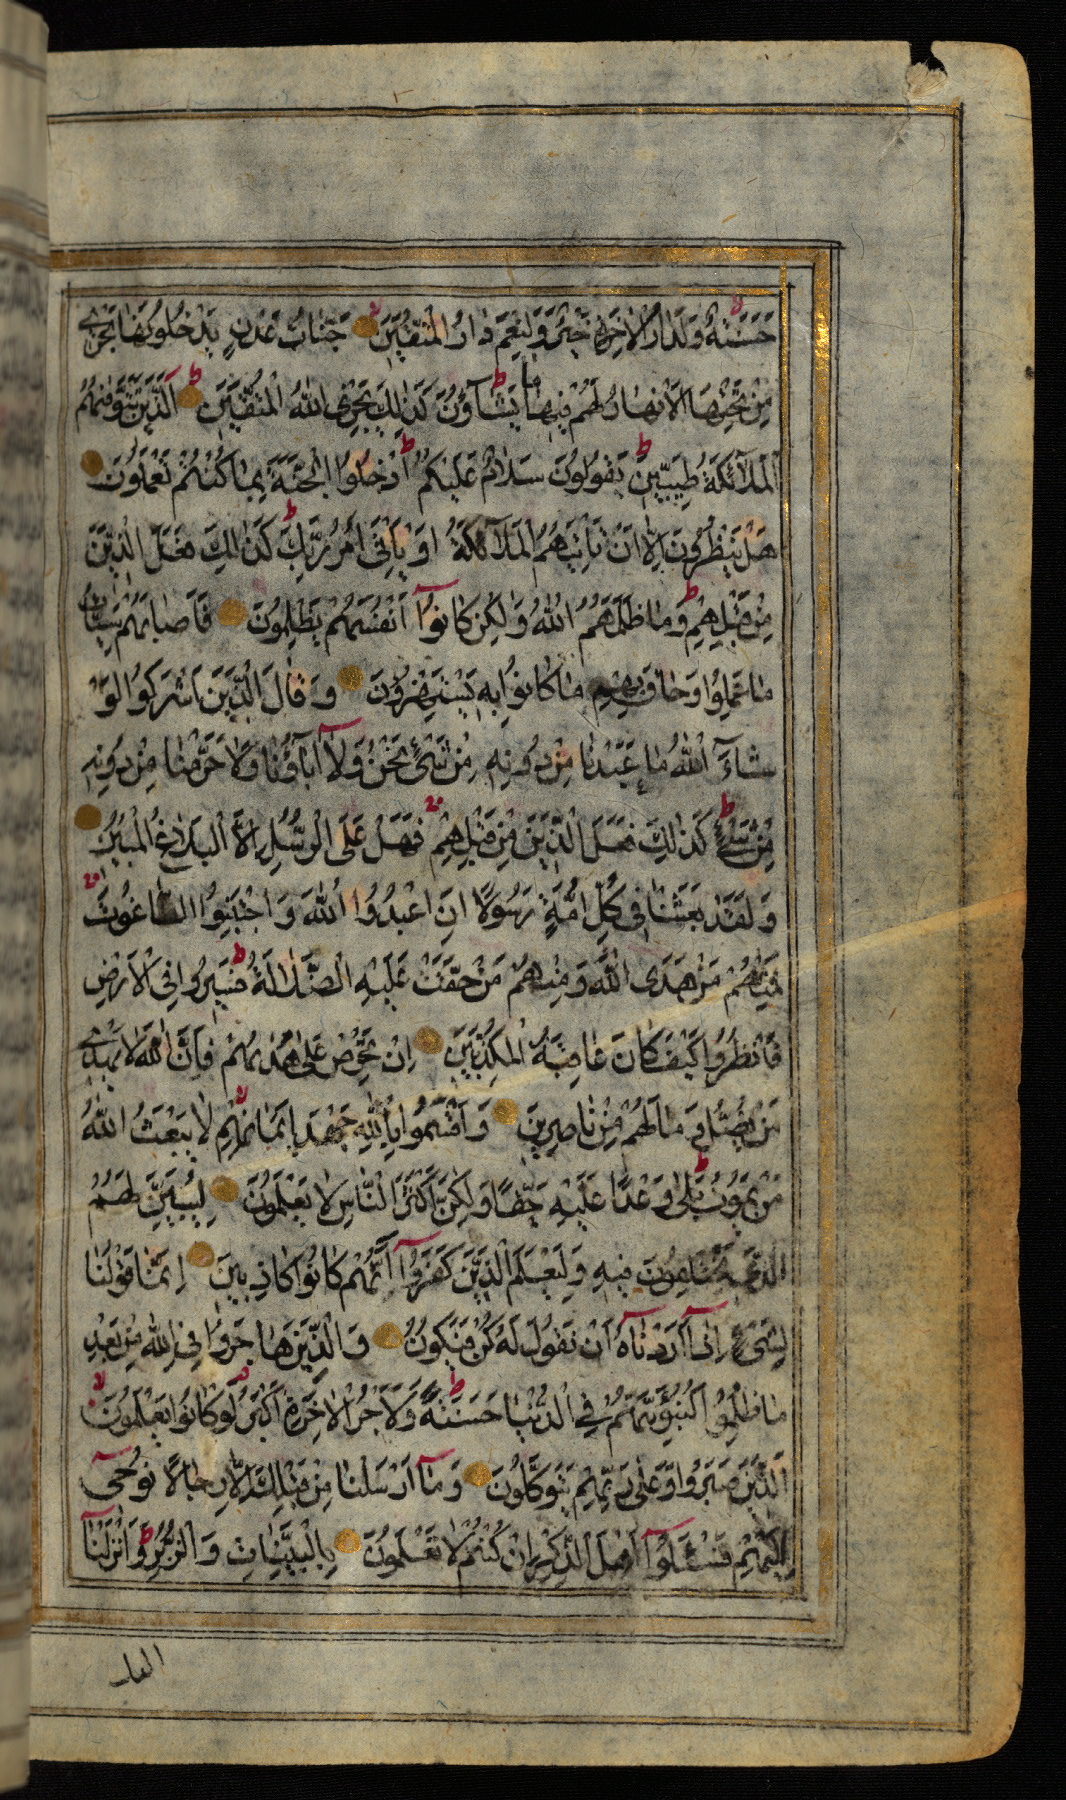 حَسَنَةٌ وَلَدَارُ الْاٰخِرَةِ خَيْرٌ وَلَنِعْمَ دَارُ الْمُتَّقِيْنَ جَنَّاتُ عَدْنٍ يَدْخُلُونَهَا تَجْرِي
مِنْ تَحْتِهَا الْاَنْهَارُ لَهُمْ فِيْهَا مَا يَشَآؤُنَ كَذٰلِكَ يَجْزِي اللّٰهُ الْمُتَّقِيْنَ اَلَّذِيْنَ تَتَوَفّٰيهُمُ
الْمَلَآئِكَةُ طَيِّبِيْنَ يَقُولُونَ سَلَامٌ عَلَيْكُمْ اُدْخُلُوا الْجَنَّةَ بِمَا كُنْتُمْ تَعْمَلُوْنَ
هَلْ يَنْظُرُونَ اِلَّا اَنْ تَاْتِيَهُمُ الْمَلَآئِكَةُ اَوْ يَاْتِيَ اَمْرُ رَبِّكَ كَذٰلِكَ فَعَلَ الَّذِيْنَ
مِنْ قَبْلِهِمْ وَمَا ظَلَمَهُمُ اللّٰهُ وَلٰكِنْ كَانُوْآ اَنْفُسَهُمْ يَظْلِمُوْنَ فَاَصَابَهُمْ سَيِّاٰتُ
مَا عَمِلُوْا وَحَاقَ بِهِمْ مَا كَانُوْا بِهٖ يَسْتَهْزِؤُنَ وَقَالَ الَّذِيْنَ اَشْرَكُوْا لَوْ
شَآءَ اللّٰهُ مَا عَبَدْنَا مِنْ دُوْنِهٖ مِنْ شَيْئٍ نَحْنُ وَلَآ اٰبَآؤُنَا وَلَا حَرَّمْنَا مِنْ دُوْنِهٖ
مِنْ شَيْئٍ كَذٰلِكَ فَعَلَ الَّذِيْنَ مِنْ قَبْلِهِمْ فَهَلْ عَلَى الرُّسُلِ اِلَّا الْبَلَاغُ الْمُبِيْنُ
وَلَقَدْ بَعَثْنَا فِي كُلِّ اُمَّةٍ رَسُوْلًا اَنِ اعْبُدُوا اللّٰهَ وَاجْتَنِبُوا الطَّاغُوْتَ
فَمِنْهُمْ مَنْ هَدَى اللّٰهُ وَمِنْهُمْ مَنْ حَقَّتْ عَلَيْهِ الضَّلَالَةُ فَسِيْرُوْا فِي الْاَرْضِ
فَانْظُرُوْا كَيْفَ كَانَ عَاقِبَةُ الْمُكَذِّبِيْنَ اِنْ تَحْرِصْ عَلٰى هُدٰيهُمْ فَاِنَّ اللّٰهَ لَا يَهْدِي
مَنْ يُضِلُّ وَمَا لَهُمْ مِنْ نَاصِرِيْنَ وَاَقْسَمُوْا بِاللّٰهِ جَهْدَ اَيْمَانِهِمْ لَا يَبْعَثُ اللّٰهُ
مَنْ يَمُوْتُ بَلٰى وَعْدًا عَلَيْهِ حَقًّا وَلٰكِنَّ اَكْثَرَ النَّاسِ لَا يَعْلَمُوْنَ لِيُبَيِّنَ لَهُمُ
الَّذِي يَخْتَلِفُوْنَ فِيْهِ وَلِيَعْلَمَ الَّذِيْنَ كَفَرُوْآ اَنَّهُمْ كَانُوْا كَاذِبِيْنَ اِنَّمَا قَوْلُنَا
لِشَيْئٍ اِذَآ اَرَدْنَاهُ اَنْ نَقُوْلَ لَهُ كُنْ فَيَكُوْنُ وَالَّذِيْنَ هَاجَرُوْا فِي اللّٰهِ مِنْ بَعْدِ
مَا ظُلِمُوْا لَنُبَوِّئَنَّهُمْ فِي الدُّنْيَا حَسَنَةً وَلَاَجْرُ الْاٰخِرَةِ اَكْبَرُ لَوْ كَانُوْا يَعْلَمُوْنَ
اَلَّذِيْنَ صَبَرُوْا وَعَلٰى رَبِّهِمْ يَتَوَكَّلُوْنَ وَمَآ اَرْسَلْنَا مِنْ قَبْلِكَ اِلَّا رِجَالًا نُوْحِي
اِلَيْهِمْ فَسْئَلُوْآ اَهْلَ الذِّكْرِ اِنْ كُنْتُمْ لَا تَعْلَمُوْنَ بِالْبَيِّنَاتِ وَالزُّبُرِ وَاَنْزَلْنَآ